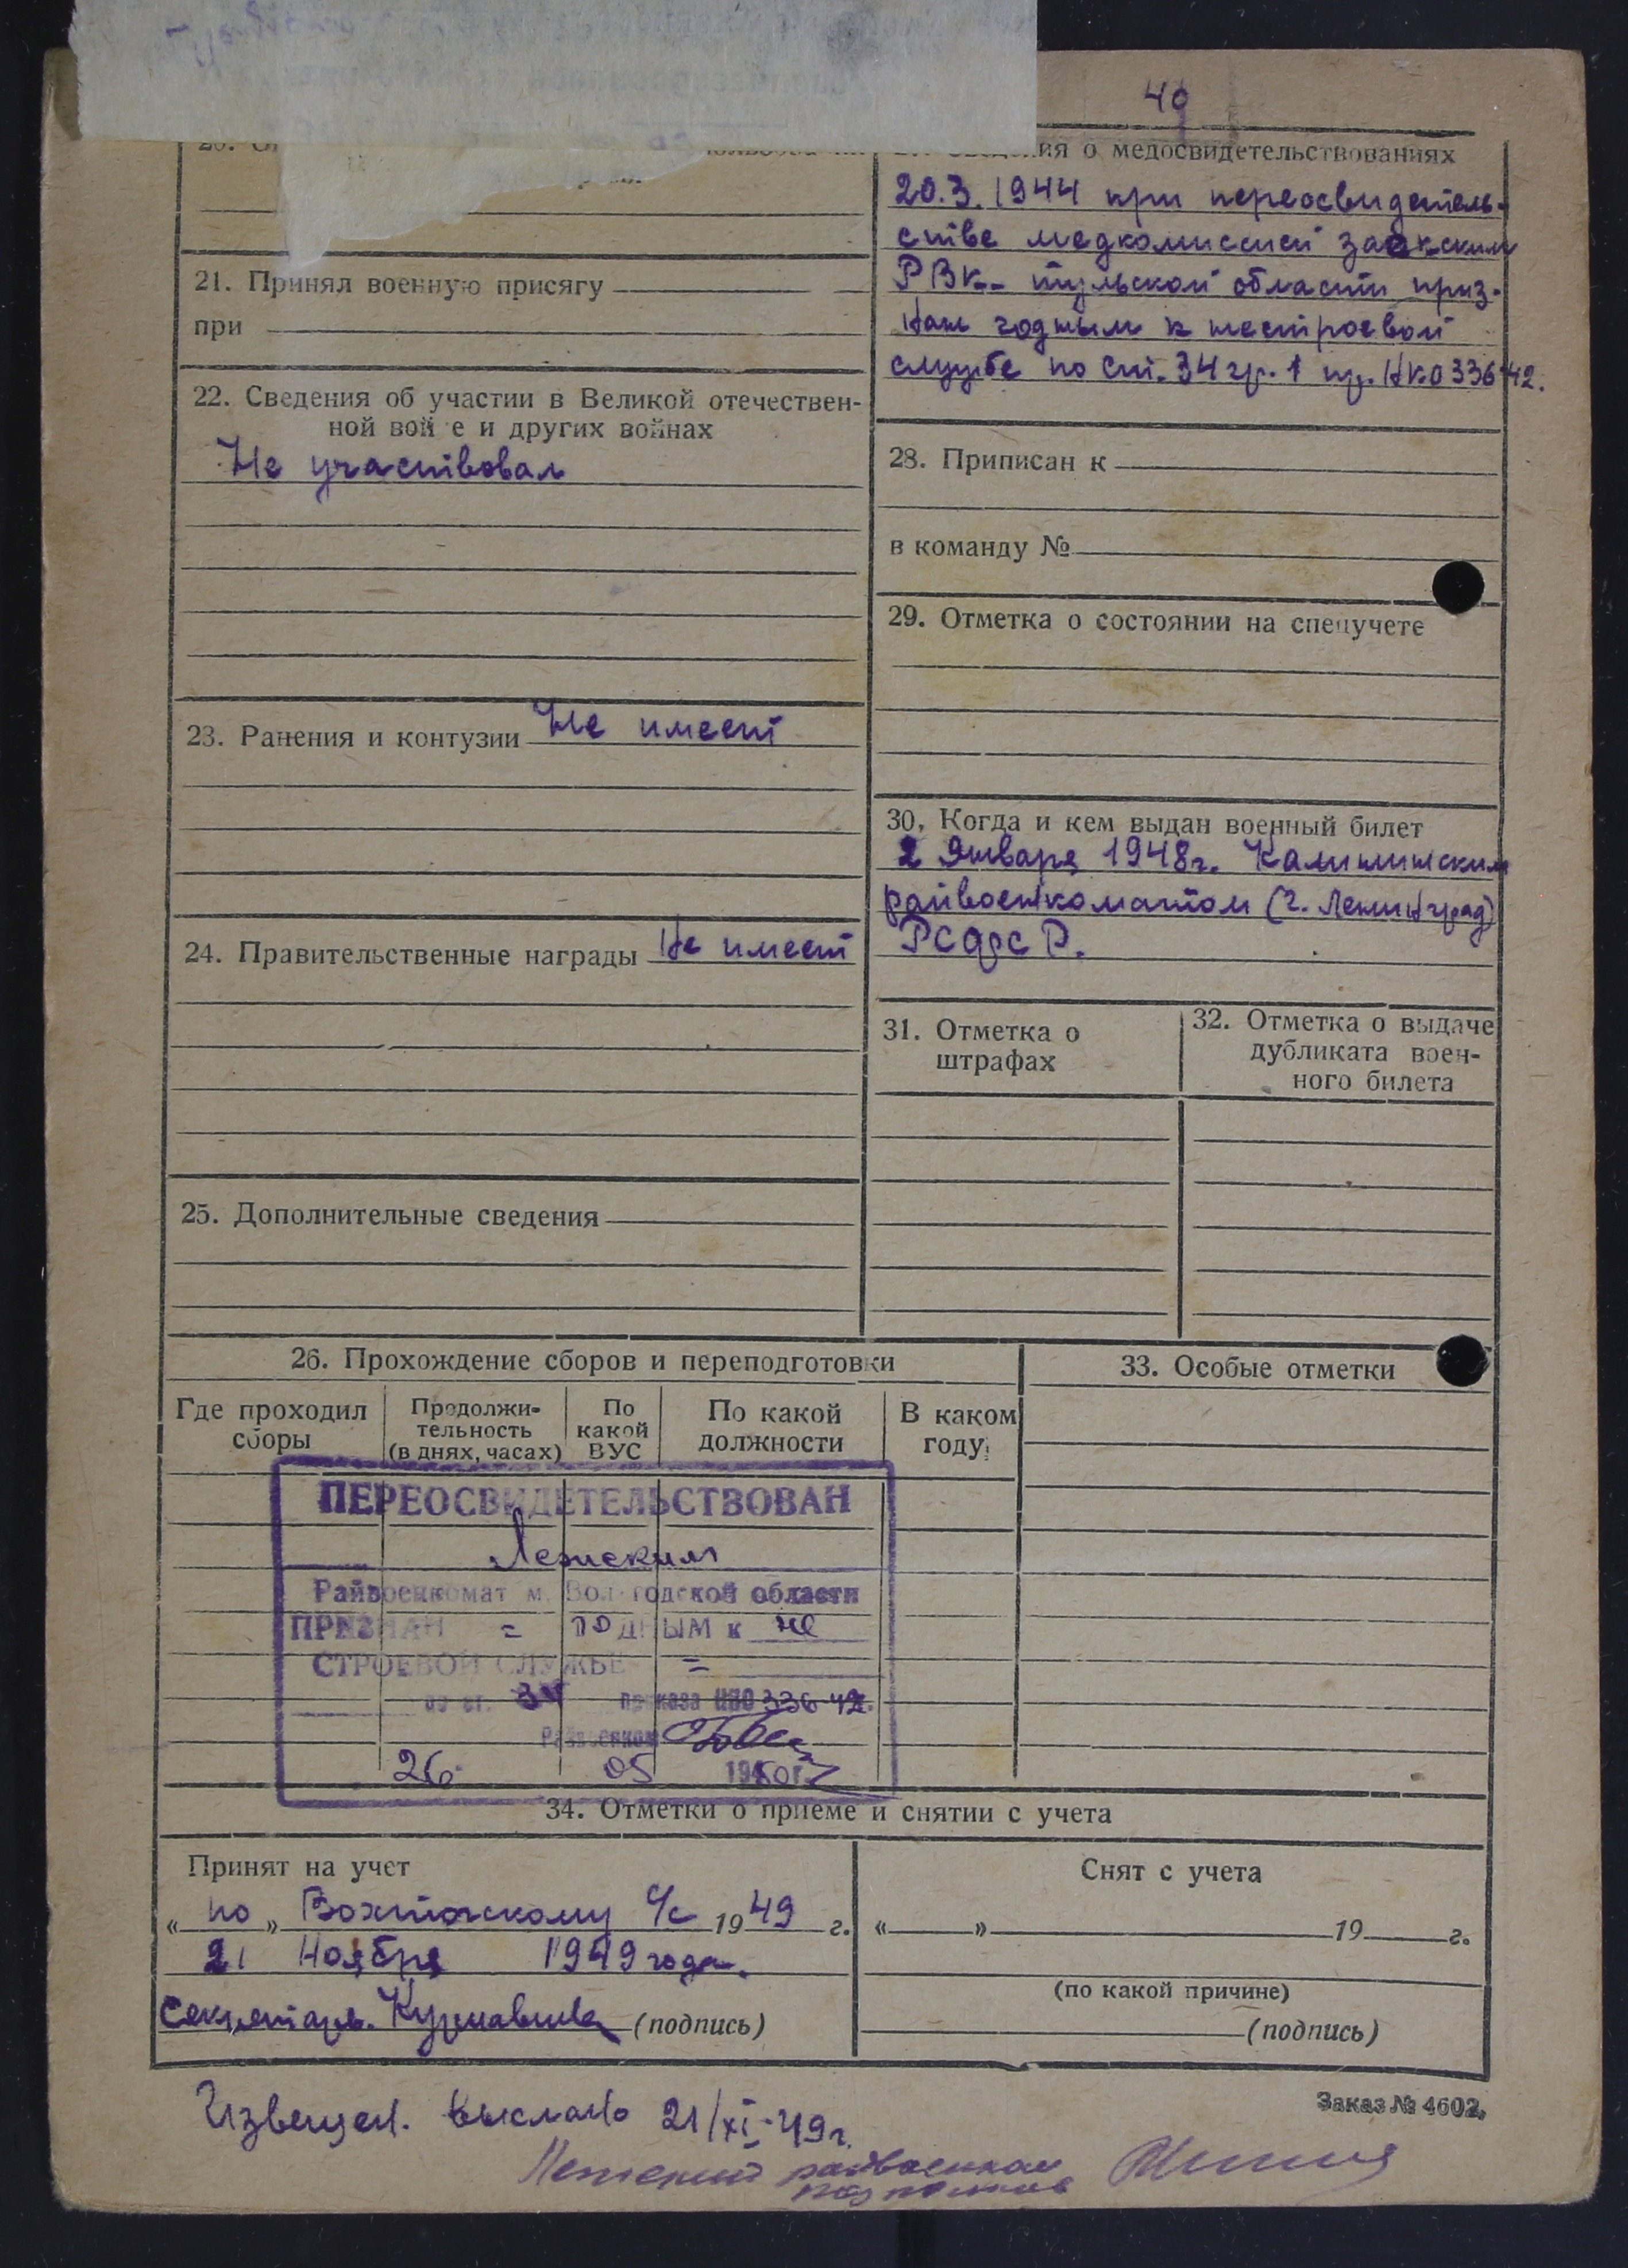 49
ия о медосвидетельствованиях
20.3.1944 при переосвидетель-
стве медкомиссией заокским
РВК-- тульской области приз-
нан годным к нестроевой
службе по ст. 34 гр. 1 пр. НКО 336-42.
21. Принял военную присягу
при
22. Сведения об участии в Великой отечествен-
ной вой е и других войнах
Не участвовал
23. Ранения и контузии Не имеет
24. Правительственные награды Не имеет
25. Дополнительные сведения
28. Приписан к
в команду №
29. Отметка о состоянии на спецучете
30, Когда и кем выдан военный билет
2 Января 1948г. Калининским
райвоенкоматом (г. Ленинград)
РСФСР.
31. Отметка о
штрафах
32. Отметка о выдаче
дубликата воен-
ного билета
26. Прохождение сборов и переподготовки
Где проходил
сборы
Продолжи-
тельность
(в днях, часах)
По
какой
ВУС
По какой
должности
В каком
году
33. Особые отметки
ПЕРЕОСВИДЕТЕЛЬСТВОВАН
Лежским
Райвоенкомат м. Вологодской области
ПРИЗНАН = ГОДНЫМ к не
СТРОЕВОЙ СЛУЖБЕ =
по ст. 34 приказа НКО 336-42.
Райвоенком
26 05 1950г.
34. Отметки о приеме и снятии с учета
Принят на учет
« по » Вохтожскому С/с 1949 г.
21 Ноября 1949 года.
Секретарь. (подпись)
Снят с учета
« » 19 г.
(по какой причине)
(подпись)
Извещен. выслано 21/XI-49г.
Заказ № 4602.
Лежский райвоенком